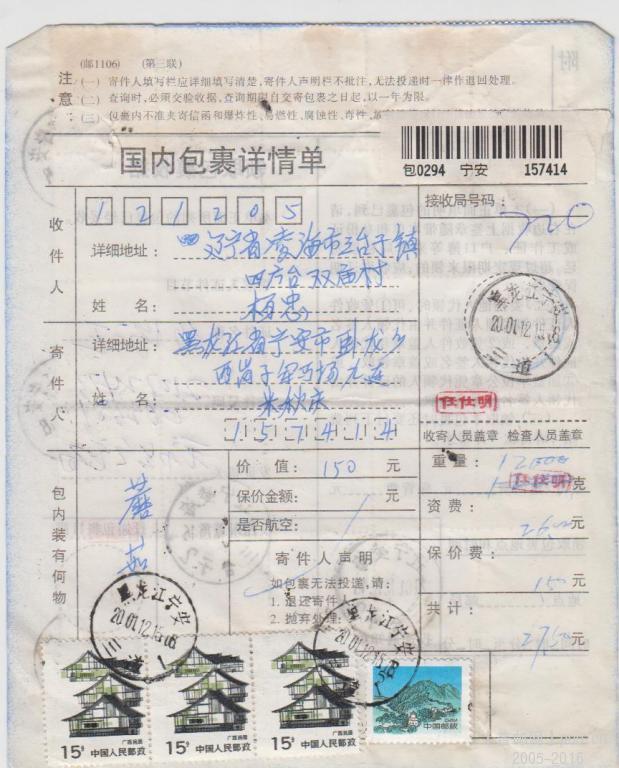 (邮1106) (第三联)
注意
(一) 寄件人填写栏应详细填写清楚,寄件人声明栏不批注,无法投递时一律作退回处理。
(二) 查询时,必须交验收据,查询期限自交寄包裹之日起,以一年为限。
(三) 包裹内不准夹寄信函和爆炸性、易燃性、腐蚀性、毒性、
附
国内包裹详情单
包0294 宁安 157414
接收局号码:
720
收件人
121205
详细地址: 辽宁省凌海市三台子镇
四方台双庙村
姓 名: 杨忠
寄件人
详细地址: 黑龙江省宁安市卧龙乡
西岗子军马场九连
姓 名: 米秋庆
157414
黑龙江宁安
2001.12.15.08
三道
任仕明
收寄人员盖章 检查人员盖章
包内装有何物
蘑菇
价 值: 150 元
保价金额: 元
是否航空:
重量: 克
任仕明
资费: 元
保价费: 元
共计: 元
寄件人声明
如包裹无法投递,请:
1. 退还寄件人
2. 抛弃处理
黑龙江宁安
2001.12.15.08
三道
黑龙江宁安
2001.12.15.08
15分 中国人民邮政
广西民居
15分 中国人民邮政
广西民居
15分 中国人民邮政
广西民居
中国邮政
CHINA
2005-2016